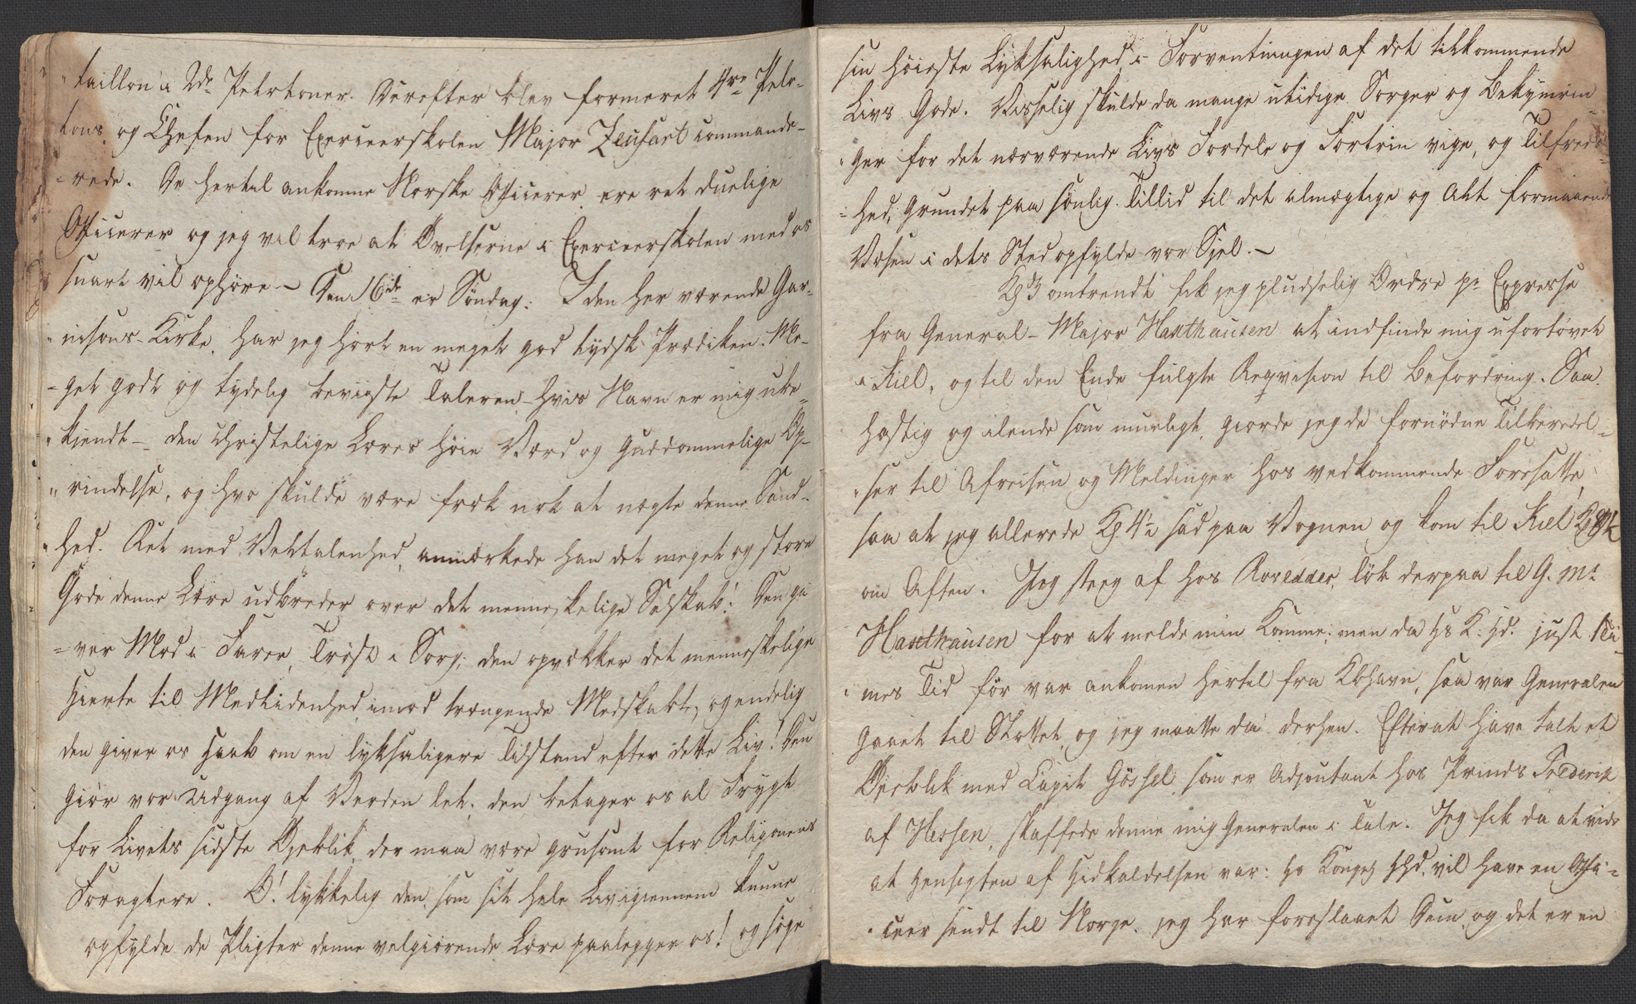 taillon a 2de Pelotoner. Derefter blev formeret 4re Pelo-
tons og Chefen for Exerceerskolen Major Zeufart commande-
rede. De hertil ankomne Norske Officierer ere ret duelige
Officierer og jeg vil troe at Øvelserne i Exerceerskolen med os
snart vil ophøre - Den 16de er Søndag. I den her værende Gar-
nisons-Kirke har jeg hørt en meget god tydsk Prædiken. Me-
get godt og tydelig beviiste Taleren - hvis Navn er mig ube-
kjendt - den Christelige Læres høie Værd og Guddommelige Op-
rindelse, og hvo skulde være fræk nok at nægte denne Sand-
hed. Ret med Veltalenhed anmærkede han det meget og store
Gode denne Lære udbreder over det menneskelige Selskab! Den gi-
ver Mod i Farer, Trøst i Sorg; den opvækker det menneskelige
Hierte til Medlidenhed imod trængende Medskabte, og endelig
den giver os Haab om en lyksaligere Tilstand efter dette Liv! Den
giør vor Udgang af Verden let, den betager os al Frygt
for Livets sidste Øjeblik, der maa være grusomt for Religionens
Foragtere. O! lykkelig den, som sit hele Liv igiennem kunne
opfylde de Pligter denne velgiørende Lære paalegger os! og søge
sin høieste Lyksalighed i Forventningen af det tilkommende
Livs Gode. Visselig skulde da mange utidige Sorger og Bekymrin-
ger for det nærværende Livs Fordele og Fortrin vige, og Tilfreds-
hed, Grundet paa sønlig Tillid til det almægtige og Alt formaaende
Væsen i dets Sted opfylde vor Sjel. -
Kl 3 omtrendt fik jeg pludselig Ordre pr Expresse
fra General-Major Haxthausen at indfinde mig ufortøvet
i Kiel, og til den Ende fulgte Reqvisition til Befordring. Saa
hastig og ilende som mueligt, giorde jeg de fornødne Tilberedel-
ser til Afreisen og Meldinger hos vedkommende Foresatte,
saa at jeg allerede Kl 4½ sad paa Vognen og kom til Kiel Kl
om Aften. Jeg steeg af hos Rosedder, løb derpaa til G. Mr
Haxthausen for at melde min Komme; men da Hs K. Hd. just 1 Ti-
mes Tid før var ankomen hertil fra Kbhavn, saa var Generalen
gaaet til Slottet og jeg maatte da derhen. Efterat have talt et
Øjeblik med Capit Gössel, som er Adjoutant hos Prinds Frederik
af Hessen, skaffede denne mig Generalen i Tale. Jeg fik da at vide
at Hensigten af Hidkaldelsen var: Hs Konges Hhd. vil have en Offi-
ceer sendt til Norge. jeg har foreslaaet Dem, og det er en